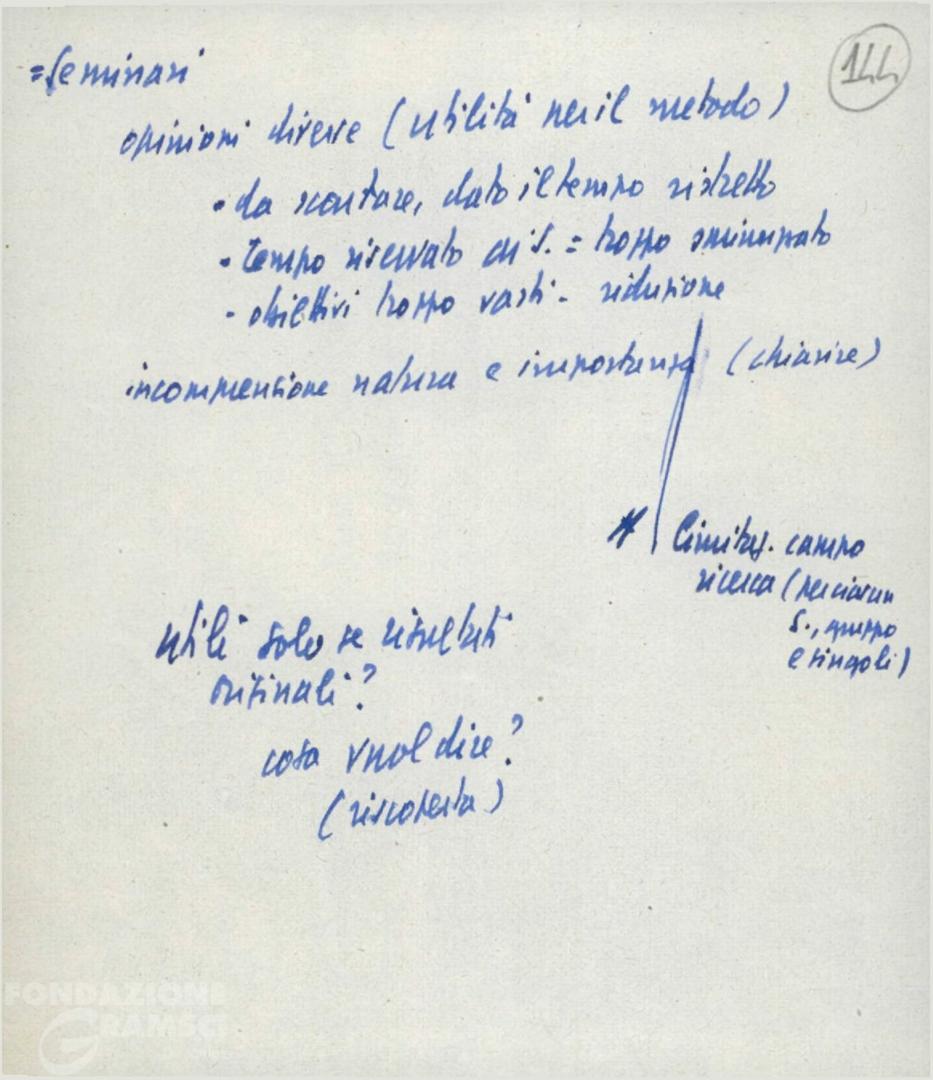 144
= Seminari
opinioni diverse (utilità per il metodo)
• da scontare, dato il tempo ristretto
• tempo riservato ai S. = troppo sminuzzato
- obiettivi troppo vasti - riduzione
incomprensione natura e importanza (chiarire)
* Limitaz. campo
ricerca (per ciascun
S., gruppo
e singoli)
utili solo se risultati
originali?
cosa vuol dire?
(riscoperta)
FONDAZIONE
GRAMSCI